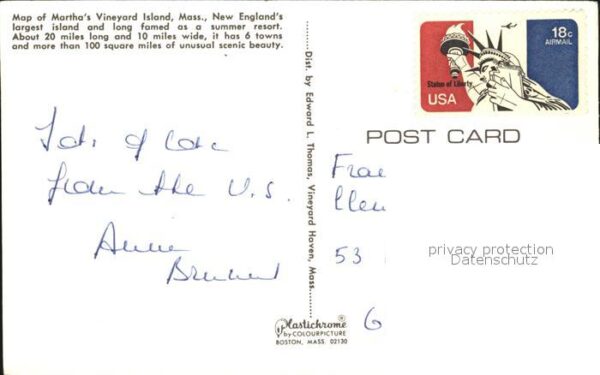 Map of Martha's Vineyard Island, Mass., New England's
largest island and long famed as a summer resort.
About 20 miles long and 10 miles wide, it has 6 towns
and more than 100 square miles of unusual scenic beauty.
Lots of love
from the U.S.
Anne
Dist. by Edward L. Thomas, Vineyard Haven, Mass.
Plastichrome®
by COLOURPICTURE
BOSTON, MASS. 02130
18c
AIRMAIL
Statue of Liberty
USA
POST CARD
Frau
53
privacy protection
Datenschutz
6